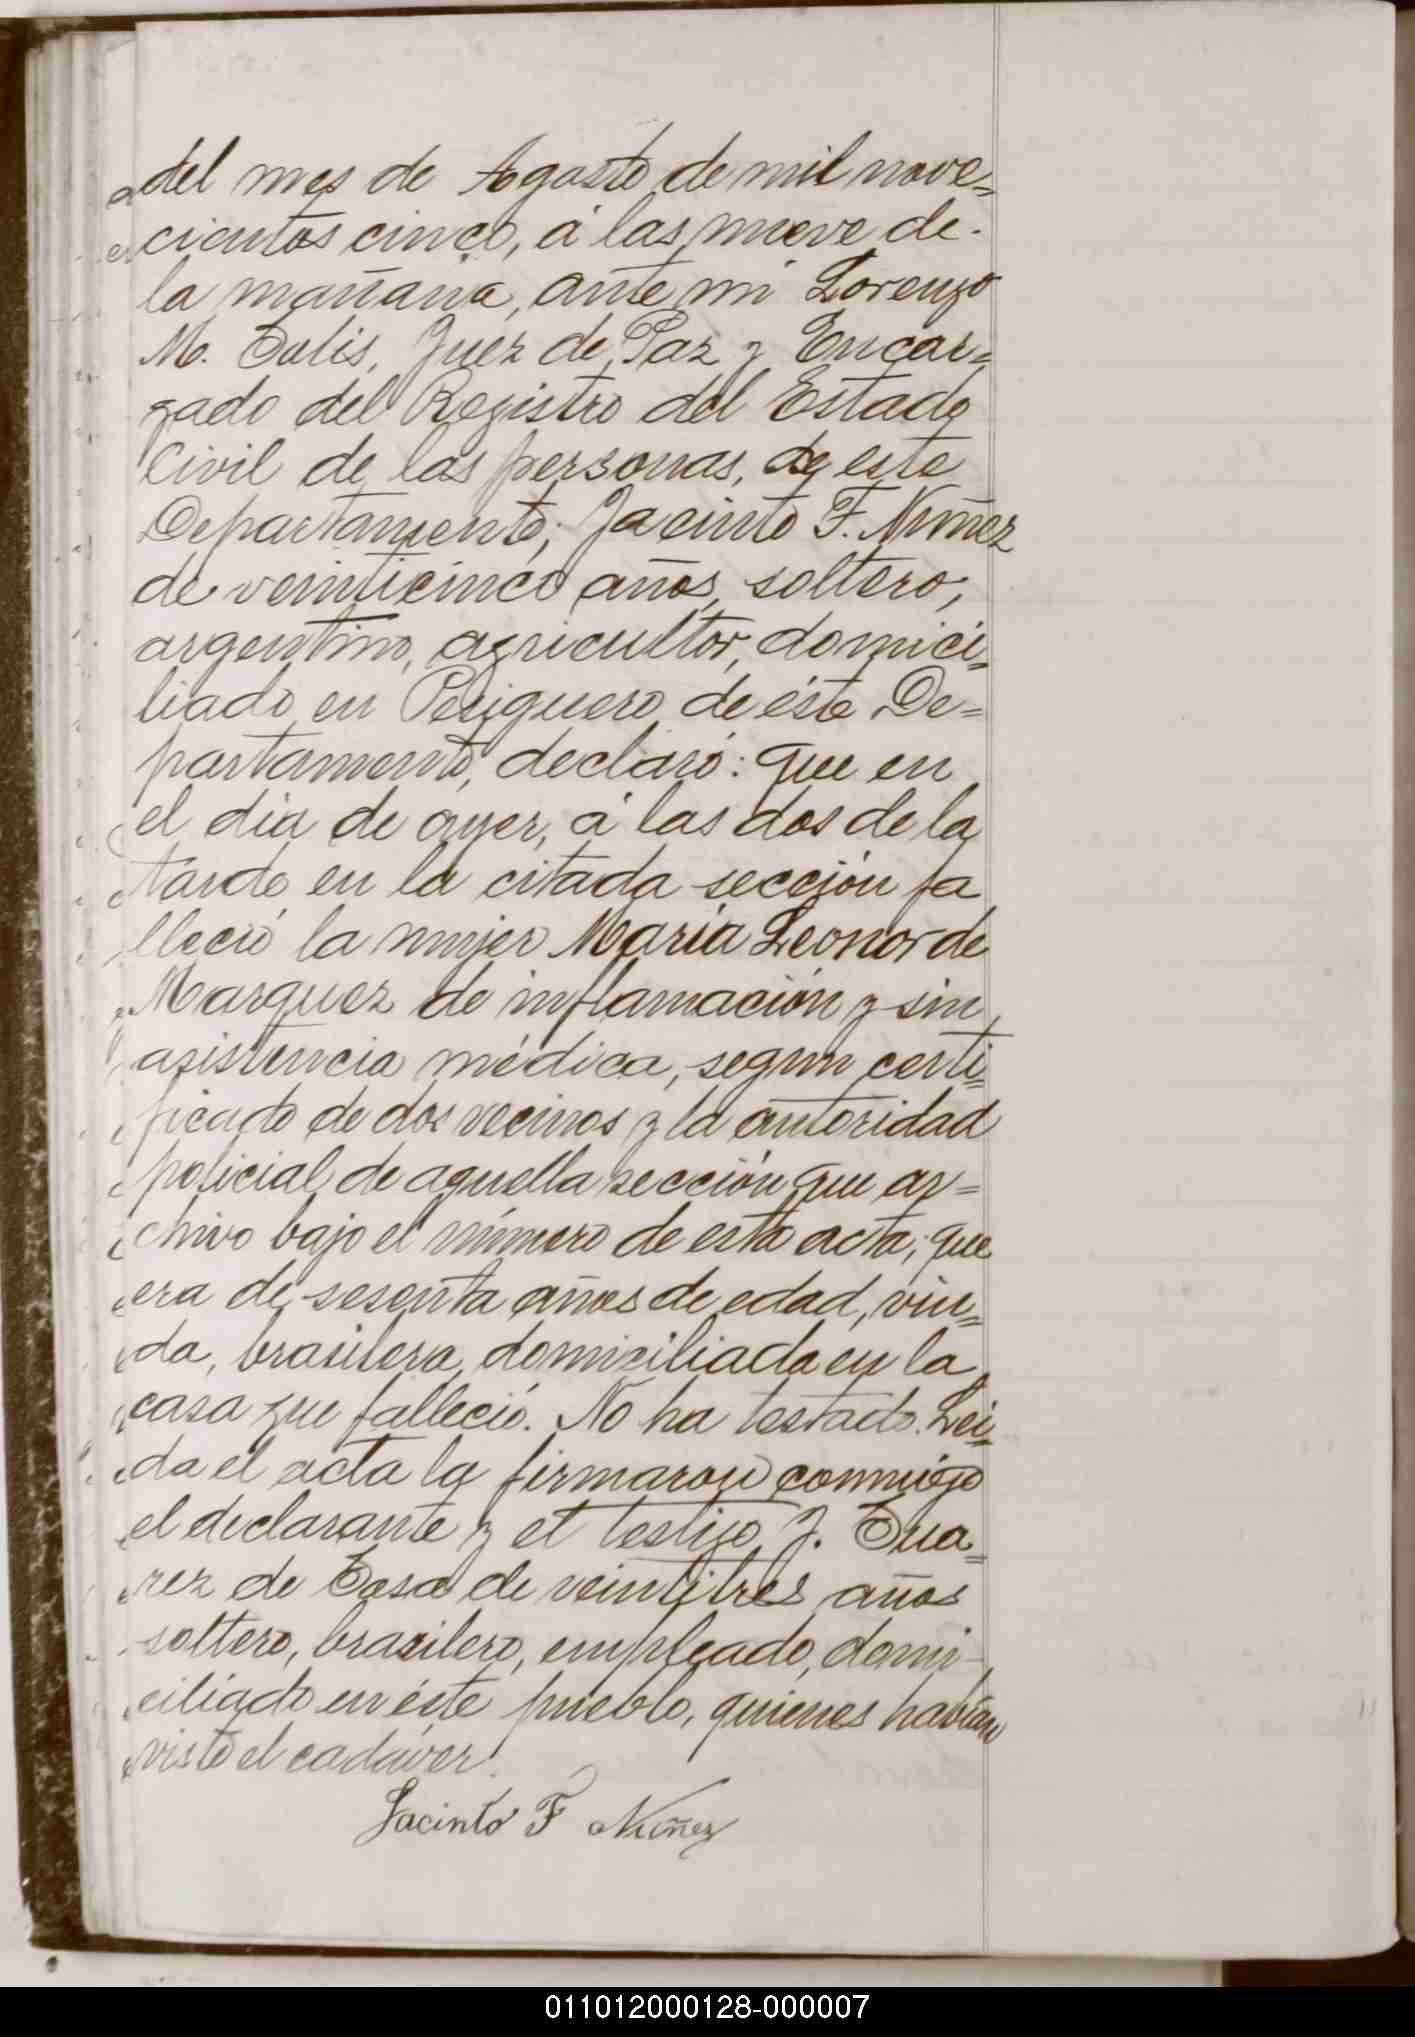 del mes de Agosto de mil nove=
cientos cinco, á las nueve de
la mañana, ante mi Lorenzo
M. Juez de Paz y Encar=
gado del Registro del Estado
Civil de las personas, de este
Departamento; Jacinto F. Nuñez
de veinticinco años, soltero,
argentino, agricultor, domici=
liado en Periguero de éste De=
partamento, declaró: que en
el dia de ayer, á las dos de la
tarde en la citada sección fa
lleció la mujer Maria Leonor de
Marquez de inflamación y sin
asistencia médica, segun certi=
ficado de dos vecinos y la autoridad
policial de aquella sección que ar=
chivo bajo el número de esta acta; que
era de sesenta años de edad, viu=
da, brasilera, domiciliada en la
casa que falleció. No ha testado. Lei=
da el acta la firmaron conmigo
el declarante y el testigo J. Sua=
rez de Sosa de veintitres años
soltero, brasilero, empleado, domi-
ciliado en éste pueblo, quienes habian
visto el cadáver.
Jacinto F Nuñez
011012000128-000007